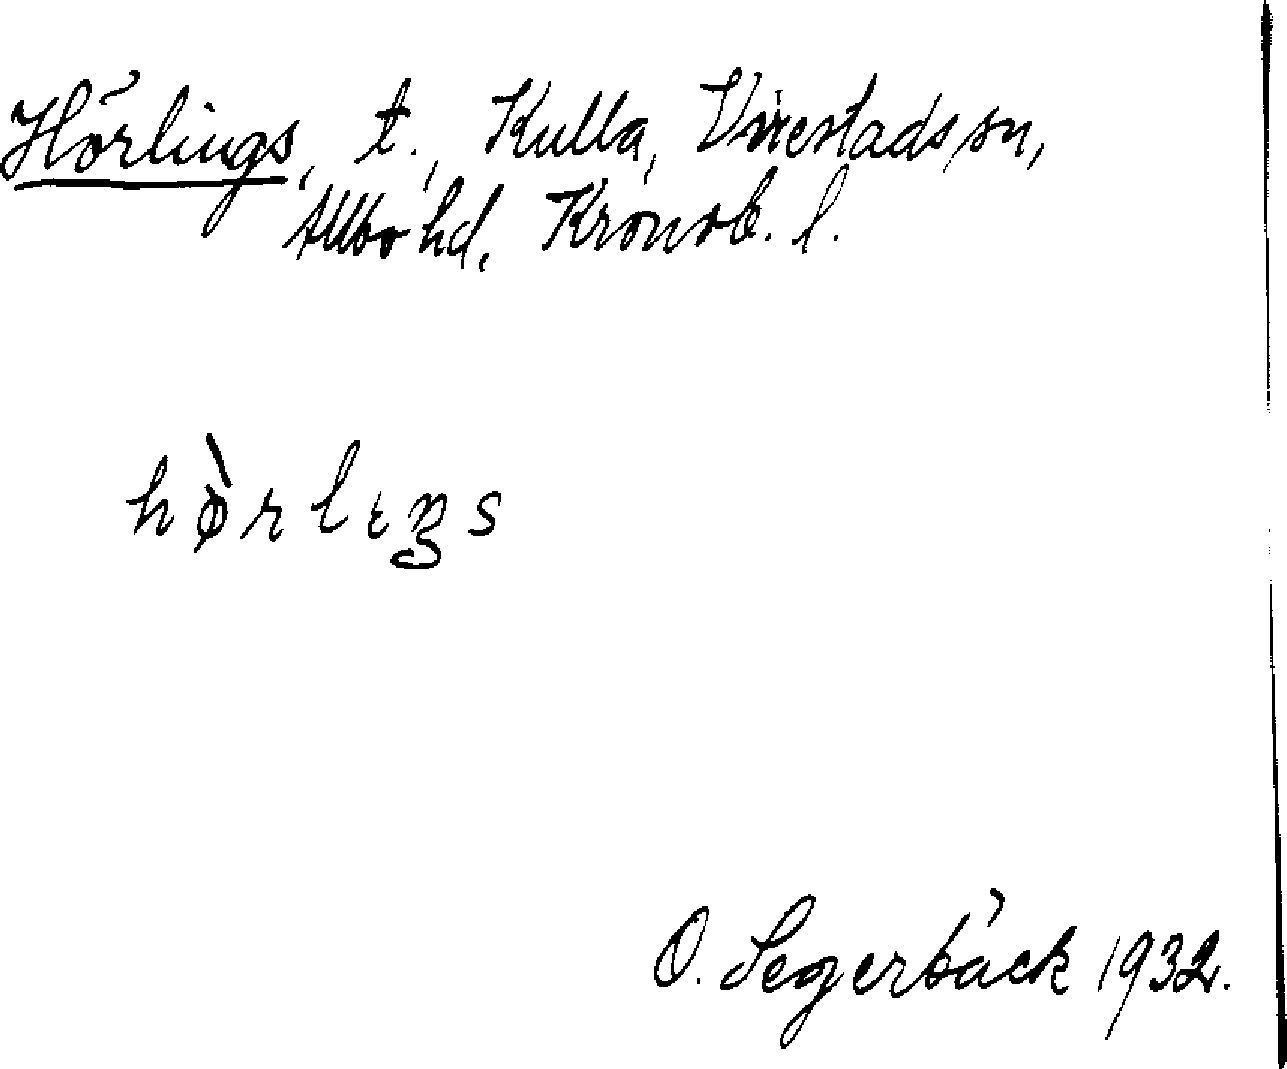 Hörlings, t., Kulla, Virestads sn,
Allbo hd, Kronob. l.
hø̀rlıŋs
O. Segerbäck 1932.